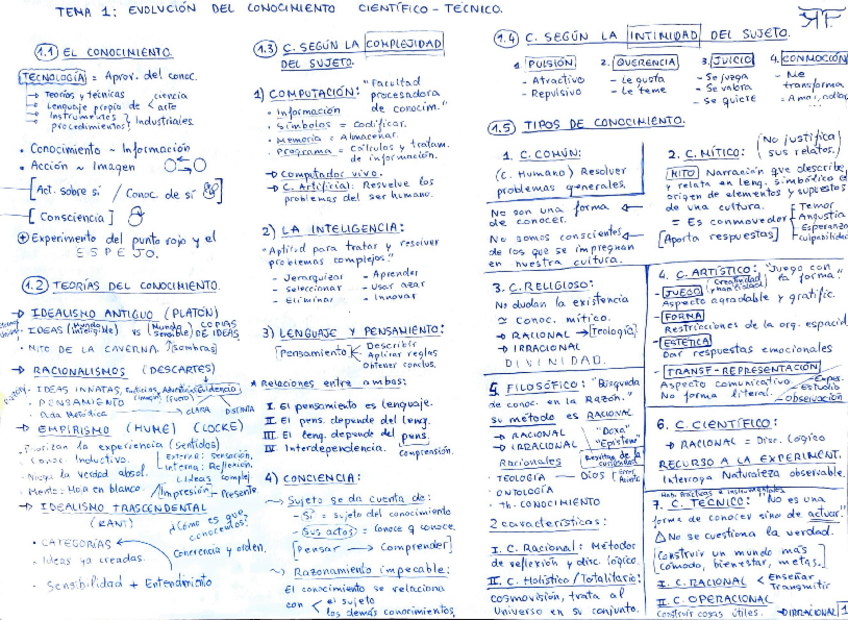 TEMA 1: EVOLUCIÓN DEL CONOCIMIENTO CIENTÍFICO-TÉCNICO.
1.1 EL CONOCIMIENTO.
TECNOLOGÍA = Aprov. del conoc.
→ Teorías y técnicas
→ Lenguaje propio de < ciencia
arte
→ Instrumentos y
procedimientos } Industriales.
• Conocimiento ~ Información
• Acción ~ Imagen
[Act. sobre sí / Conoc. de sí]
[Consciencia]
⊕ Experimento del punto rojo y el
ESPEJO.
1.2 TEORÍAS DEL CONOCIMIENTO.
→ IDEALISMO ANTIGUO (PLATÓN)
• IDEAS (Mundo inteligible) VS (Mundo sensible) COPIAS DE IDEAS
• MITO DE LA CAVERNA. (sombras)
→ RACIONALISMOS (DESCARTES)
• IDEAS INNATAS,
• PENSAMIENTO
• Duda Metódica
Evidencia
CLARA DISTINTA
→ EMPIRISMO (HUME) (LOCKE)
• Priorizan la experiencia (sentidos)
• Conoc. Inductivo.
Externa: sensación,
Interna: Reflexión,
• Niega la verdad absol.
Ideas complej
• Mente: Hoja en blanco
Impresión - Presente
→ IDEALISMO TRASCENDENTAL
(KANT)
¿Cómo es que
conocemos?
• CATEGORÍAS
Coherencia y orden.
• Ideas ya creadas.
• Sensibilidad + Entendimiento
1.3 C. SEGÚN LA COMPLEJIDAD
DEL SUJETO.
1) COMPUTACIÓN: "Facultad
procesadora
de conocim."
• Información
• Símbolos = Codificar.
• Memoria = Almacenar.
• Programa = Cálculos y tratam.
de información.
→ Computador vivo.
→ C. Artificial: Resuelve los
problemas del ser humano.
2) LA INTELIGENCIA:
"Aptitud para tratar y resolver
problemas complejos."
- Jerarquizar - Aprender
- Seleccionar - Usar azar
- Eliminar - Innovar
3) LENGUAJE Y PENSAMIENTO:
[Pensamiento] Describir
Aplicar reglas
Obtener conclus.
* Relaciones entre ambos:
I. El pensamiento es lenguaje.
II. El pens. depende del leng.
III. El leng. depende del pens.
IV. Interdependencia. Comprensión.
4) CONCIENCIA:
→ Sujeto se da cuenta de:
- Sí = sujeto del conocimiento
- Sus actos = Conoce q conoce.
[Pensar → Comprender]
→ Razonamiento impecable:
El conocimiento se relaciona
con < el sujeto
los demás conocimientos.
1.4 C. SEGÚN LA INTIMIDAD DEL SUJETO.
1 PULSIÓN
- Atractivo
- Repulsivo
2. QUERENCIA
- Le gusta
- Le teme
3. JUICIO
- Se juzga
- Se valora
- Se quiere
4. CONMOCIÓN
- Me
transforma
= Amor, odio,
1.5 TIPOS DE CONOCIMIENTO.
1. C. COMÚN:
(C. Humano) Resolver
problemas generales.
No son una forma
de conocer.
No somos conscientes
de los que se impregnan
en nuestra cultura.
2. C. MÍTICO: (No justifica
sus relatos.)
MITO Narración que describe
y relata en leng. simbólico el
origen de elementos y supuestos
de una cultura.
= Es conmovedor
Temor
Angustia
Esperanza
culpabilidad
[Aporta respuestas]
3. C. RELIGIOSO:
No dudan la existencia
≃ Conoc. mítico.
→ RACIONAL → Teología
→ IRRACIONAL
DIVINIDAD.
4. C. ARTÍSTICO: "Juego con
la forma."
- JUEGO (Creatividad
Aspecto agradable y gratific.
- FORMA
Restricciones de la org. espacial
- ESTÉTICA
Dar respuestas emocionales
- TRANSF-REPRESENTACIÓN
Aspecto comunicativo
No forma literal.
Estudio
observación
5. FILOSÓFICO: "Búsqueda
de conoc. en la Razón."
su método es RACIONAL
→ RACIONAL "Doxa"
→ IRRACIONAL "Episteme"
Racionales
- TEOLOGÍA — Dios
- ONTOLOGÍA
- Th. CONOCIMIENTO
2 características:
I. C. Racional: Métodos
de reflexión y disc. lógico.
II. C. Holístico/Totalitario:
cosmovisión, trata al
Universo en su conjunto.
6. C. CIENTÍFICO:
→ RACIONAL = Disc. Lógico
RECURSO A LA EXPERIMENT.
Interroga Naturaleza observable.
Hab. Prácticas e instrumentales
7. C. TÉCNICO: "No es una
forma de conocer sino de actuar."
△ No se cuestiona la verdad.
[Construir un mundo más
cómodo, bienestar, metas.]
I. C. RACIONAL < Enseñar
Transmitir
II. C. OPERACIONAL
Construir cosas útiles. → IRRACIONAL 1